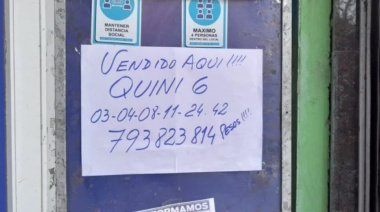 MANTENER
DISTANCIA
SOCIAL
MAXIMO
4 PERSONAS
DENTRO DEL LOCAL
VENDIDO AQUI !!!!
QUINI 6
03-04-08-11-24.42
793823814 PESOS !!!!
ORMAMOS